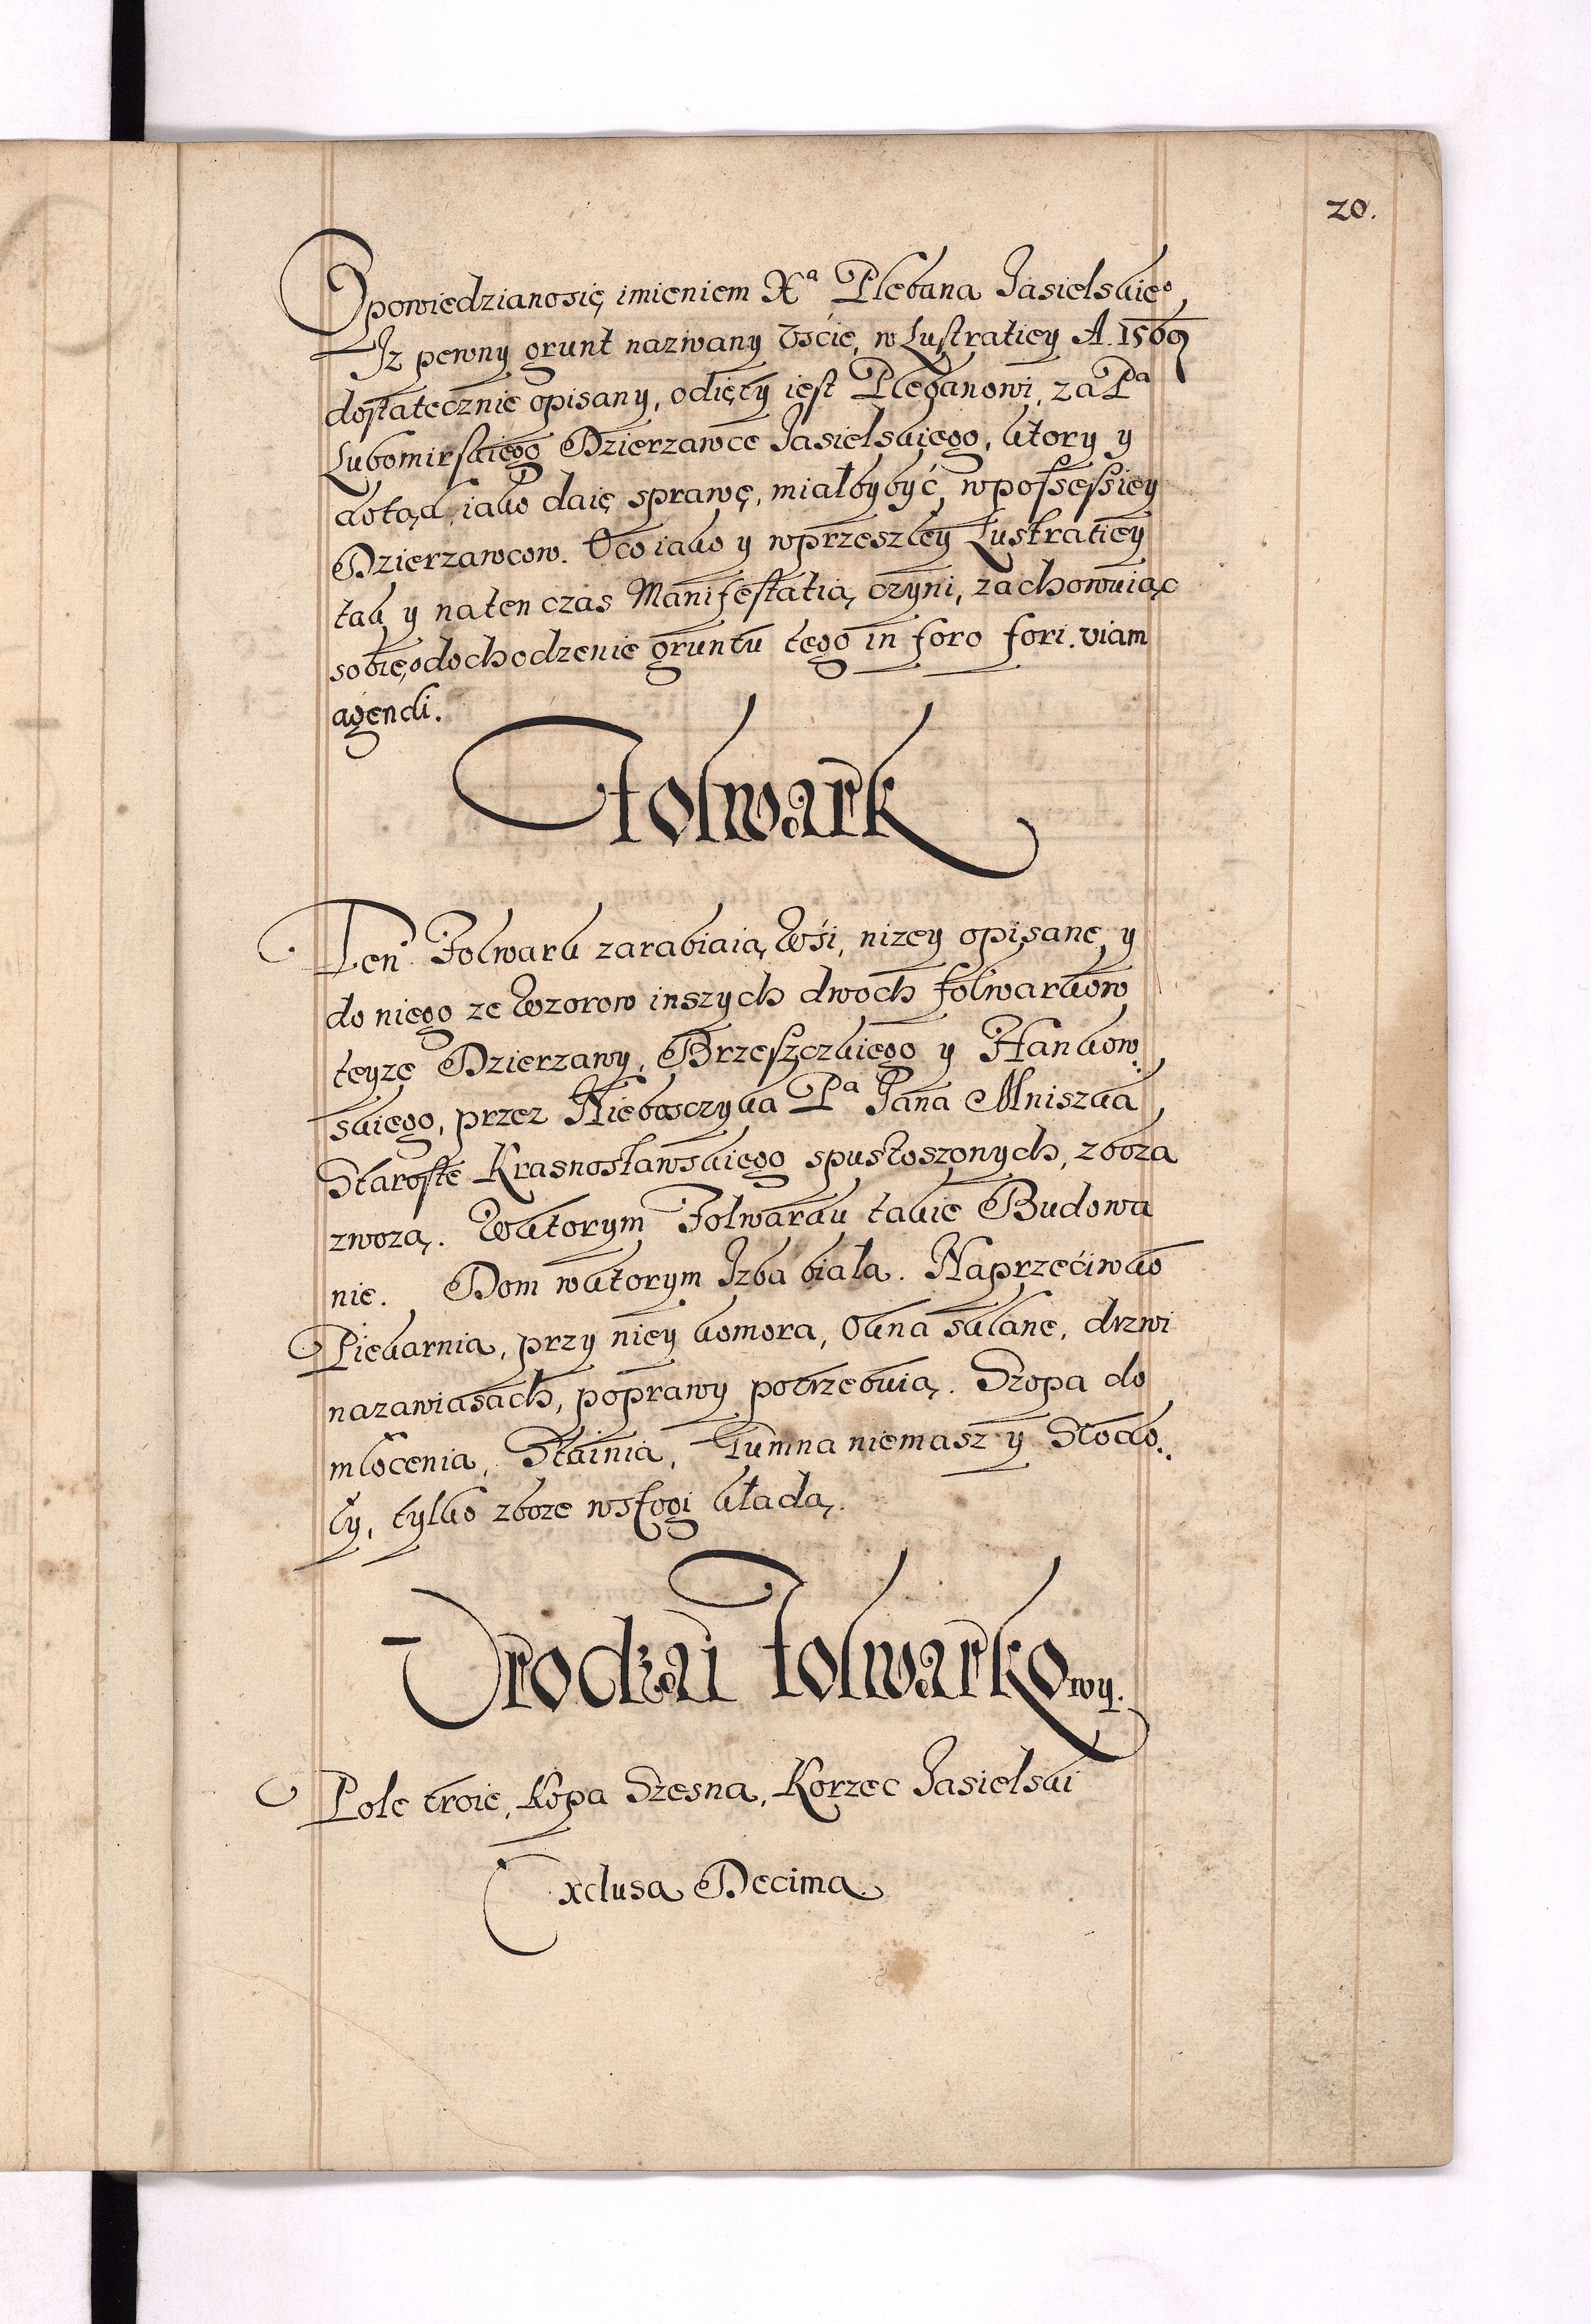 20.
Opowiedzianosię imieniem Xª Plebana Jasielskieº,
Jz pewny grunt nazwany Vście, w Lustratiey A. 1569
dostatecznie opisany, odięty iest Plebanowi, za Pª
Lubomirskiego Dzierzawce Jasielskiego, ktory y
dotąd, iako daię sprawę, miałby być w possessiey
Dzierzawcow. Oco iako y w przeszłey Lustratiey
tak y na ten czas Manifestatią czyni, zachowuiąc
sobie, o dochodzenie gruntu tego in foro fori. viam
agendi.
Folwark
Ten Folwark zarabiaią Wśi, nizey opisane, y
do niego ze Wzorow inszych dwoch folwarkow
teyze Dzierzawy, Brzeszczkiego y Hankow:
skiego, przez Niebosczyka Pª Jana Mniszka,
Staroste Krasnostawskiego spustoszonych, zboza
zwozą. W ktorym Folwarku takie Budowa
nie. Dom w ktorym Jzba biała. Naprzeciwko
Piekarnia, przy niey komora, Okna sklane, drzwi
na zawiasach, poprawy potrzebuią. Szopa do
młocenia, Stainia, Gumna niemasz y Stodo:
ły, tylko zboze w stogi kładą.
Vrodzai Folwarkowy.
Pole troie, Kopa Szesna, Korzec Jasielski
Exclusa Decima.